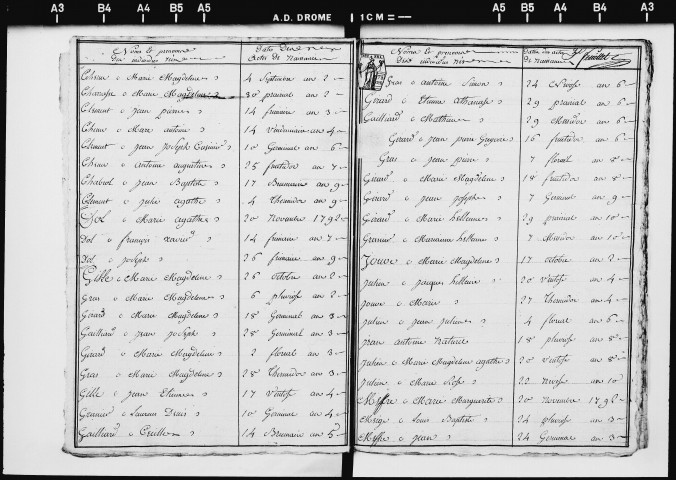 A3 B4 A4 B5 A5 A.D. DROME 1 CM = A5 B5 A4 B4 A3
Noms et prenoms
Dates Des
Actes De Naissance
Marie Magdeleine 4 an 2
Marie Magdeleine 30 prairial an 2
Clement jean pierre 14 frimaire an 3
Marc antoine 14 Vendemiaire an 4
Clement jean joseph 10 Germinal an 6
antoine augustin 25 fructidor an 7
Chabrol jean Baptiste 17 Brumaire an 9
Clement julie agathe 4 Thermidor an 9
Dol Marie agathe 20 Novembre 1792
Dol françois Xavier 14 frimaire an 7
Dol joseph 26 frimaire an 9
Gille Marie Magdeleine 26 Octobre an 2
Gras Marie Magdeleine 6 pluviose an 2
Girard Marie Magdeleine 18 Germinal an 3
Gailliard jean joseph 28 Germinal an 3
Girard Marie Magdeleine 2 floreal an 3
Gras Marie Magdeleine 28 Thermidor an 3
Gille jean Etienne 17 Ventose an 4
Laurens 10 Germinal an 4
Gailliard 14 Brumaire an 5
Noms et prenoms
Dates des actes
De Naissance
Gras antoine Simon 24 an 6
Girard Etienne Athanase 29 prairial an 6
Gailliard Mathieu 29 Messidor an 6
Girard jean pierre Gregoire 16 fructidor an 6
Gras jean pierre 7 floreal an 8
Girard Marie Magdeleine 18 fructidor an 8
Girard jean joseph 7 Germinal an 9
Girard Marie hellenne 29 prairial an 10
Marianne hellenne 7 Messidor an 10
Jouve Marie Magdeleine 17 Octobre an 2
julien jacques hillaire 20 Ventose an 4
jouve Marie 27 Thermidor an 4
julien jean julien 4 floreal an 6
jean antoine naturel 18 pluviose an 8
julien Marie Magdeleine agathe 20 Ventose an 8
julien Marie Rose 22 nivose an 10
Meffre Marie Marguerite 20 novembre 1792
Louis Baptiste 24 pluviose an 3
Meffre jean 24 Germinal an 3